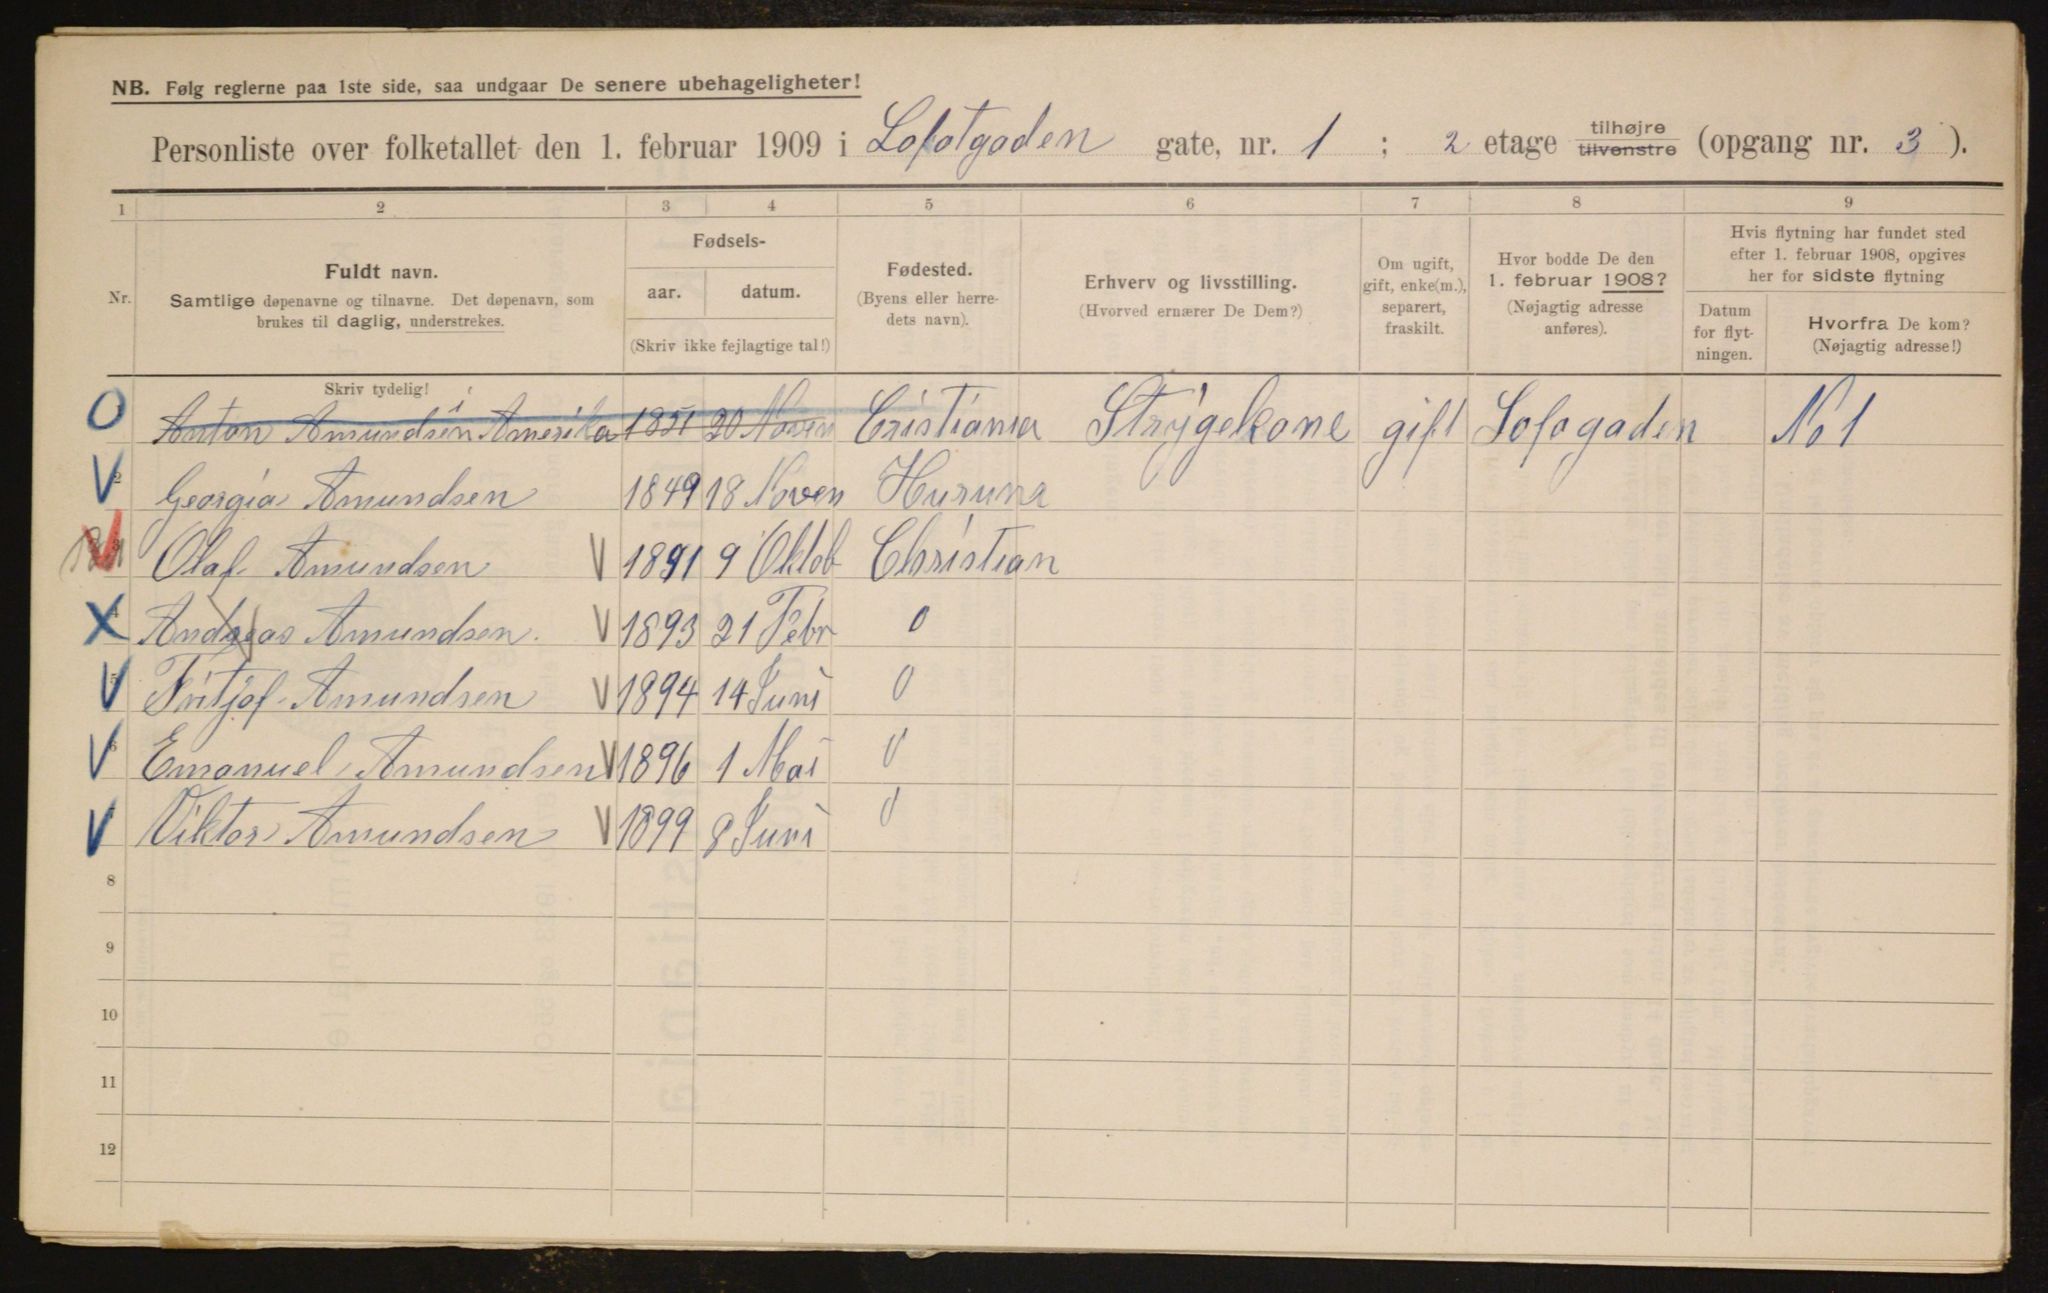 NB. Følg reglerne paa 1ste side, saa undgaar De senere ubehageligheter!
Personliste over folketallet den 1. februar 1909 i Lofotgaden gate, nr. 1 ; 2 etage tilhøjre tilvenstre (opgang nr. 3 ).
1 2 3 4 5 6 7 8 9
Nr.
Fuldt navn.
Samtlige døpenavne og tilnavne. Det døpenavn, som
brukes til daglig, understrekes.
Fødsels-
aar. datum.
(Skriv ikke fejlagtige tal!)
Fødested.
(Byens eller herre-
dets navn).
Erhverv og livsstilling.
(Hvorved ernærer De Dem?)
Om ugift,
gift, enke(m.),
separert,
fraskilt.
Hvor bodde De den
1. februar 1908?
(Nøjagtig adresse
anføres).
Hvis flytning har fundet sted
efter 1. februar 1908, opgives
her for sidste flytning
Datum
for flyt-
ningen.
Hvorfra De kom?
(Nøjagtig adresse!)
Skriv tydelig!
Anton Amundsen i Amerika 1851 20 Noven Cristiania Strygekone gift Lofogaden No 1
2 Georgia Amundsen 1849 18 Noven Hurum
Olaf Amundsen V 1891 9 Oktob Christian
4 Andreas Amundsen. V 1893 21 Febr 0
5 Fritjof Amundsen V 1894 14 Juni 0
6 Emanuel Amundsen V 1896 1 Mai 0
Viktor Amundsen V 1899 8 Juni 0
8
9
10
11
12